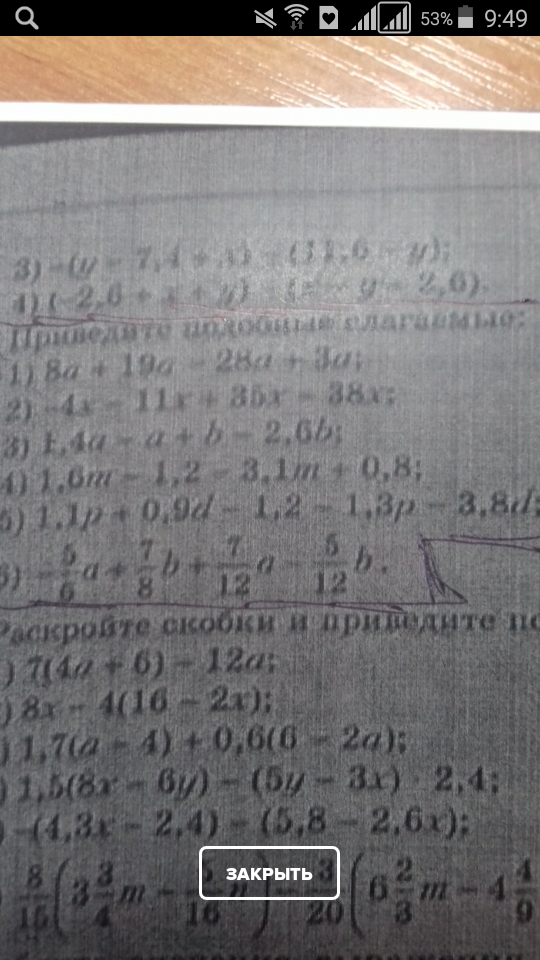 53% 9:49
3) -(y - 7,4 + x) - (11,6 - y);
4) (-2,6 + x + y) - (x - y - 2,6).
Приведите подобные слагаемые:
1) 8a + 19a - 28a + 3a;
2) -4x - 11x + 35x - 38x;
3) 1,4a - a + b - 2,6b;
4) 1,6m - 1,2 - 3,1m + 0,8;
5) 1,1p + 0,9d - 1,2 - 1,3p - 3,8d;
6) -5/6 a + 7/8 b + 7/12 a - 5/12 b.
Раскройте скобки и приведите по
) 7(4a + 6) - 12a;
) 8x - 4(16 - 2x);
) 1,7(a - 4) + 0,6(6 - 2a);
) 1,5(8x - 6y) - (5y - 3x) · 2,4;
) -(4,3x - 2,4) - (5,8 - 2,6x);
8/15 (3 3/4 m - 5/16 n) - 3/20 (6 2/3 m - 4 4/9
ЗАКРЫТЬ